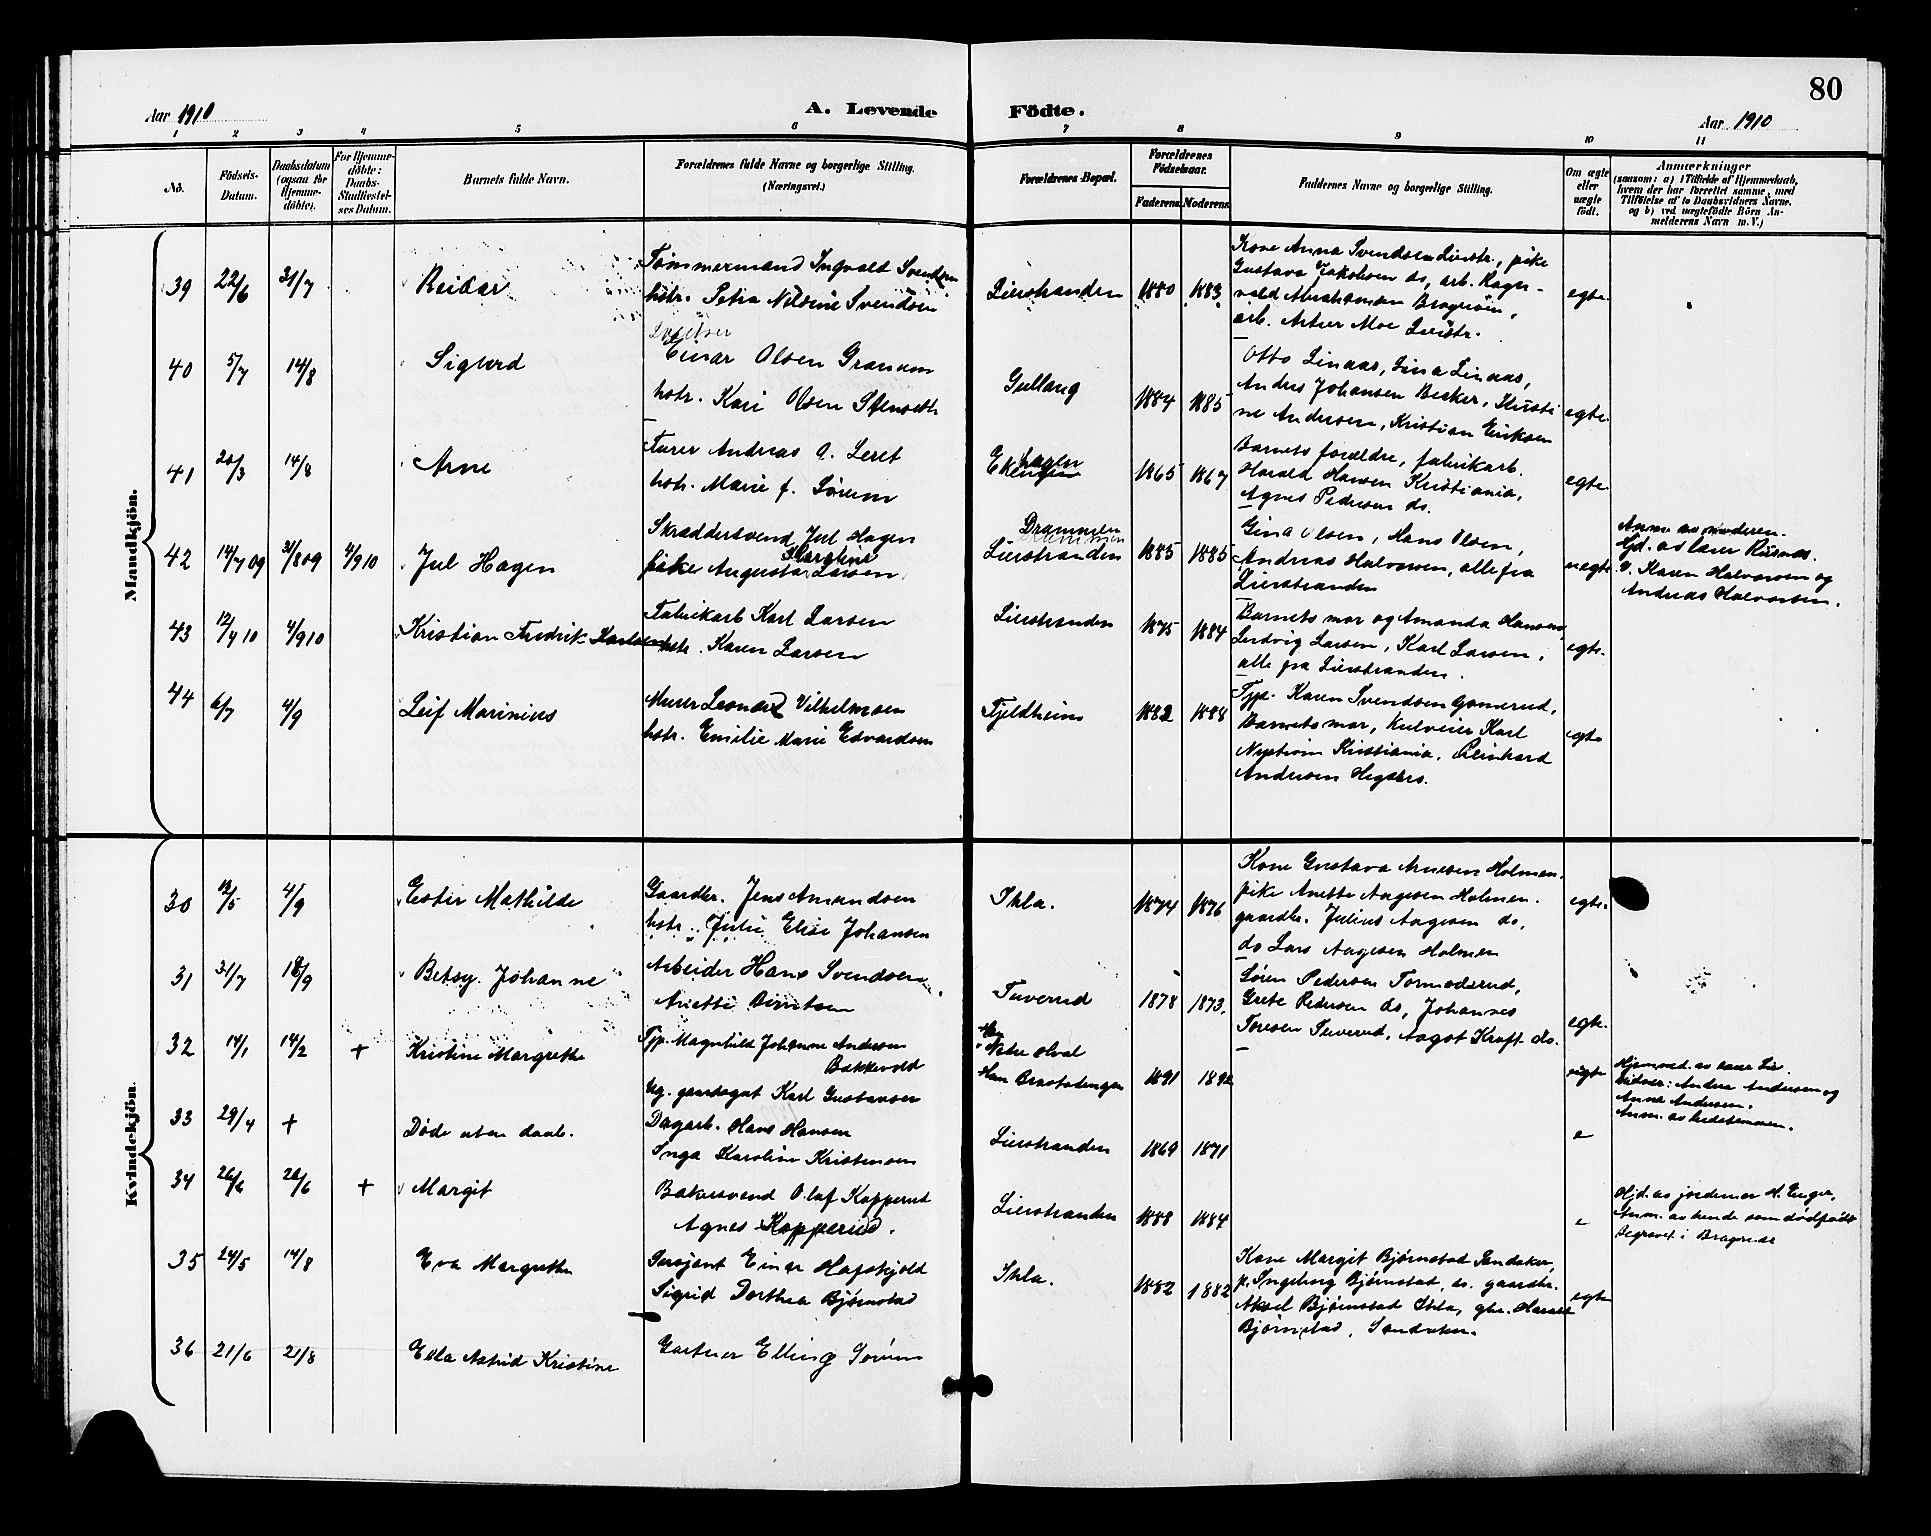 80
Aar 1910
A. Levende Födte.
Aar 1910
1 2 3 4 5 6 7 8 9 10 11
No.
Födsels-Datum.
Daabsdatum (ogsaa for Hjemme-döbte).
For Hjemme-döbte: Daabs-Stadfæstel-ses Datum.
Barnets fulde Navn.
Forældrenes fulde Navne og borgerlige Stilling.
(Næringsvei.)
Forældrenes Bopæl.
Forældrenes Födselsaar.
Faderens Moderens
Faddernes Navne og borgerlige Stilling.
Om ægte eller uægte födt.
Anmærkninger
(saasom: a) i Tilfælde af Hjemmedaab,
hvem der har forrettet samme, med
Tilföielse af to Daabsvidners Navne.
og b) ved uægtefödte Börn An-
melderens Navn m. V.)
Mandkjön.
39 22/6 31/7 Reidar
Tømmermand Ingvald Svendsen
hstr. Petra Nilsine Svendsen
Lierstranden 1880 1883
Kone Anna Svendsen Lierstr., pike
Gustava Jakobsen ds, arb. Ragn-
vald Abrahamsen Bragerøen,
arb. Artur Moe Lierstr.
egte
40 5/7 14/8 Sigurd
Einar Olsen Granum
hstr. Kari Olsen
Gullaug 1884 1885
Otto Linaas, Gina Linaas,
Anders Johansen Becker,
ne Andersen, Kristian Eriksen
egte
41 20/3 14/8 Arne
Furer Andreas A. Leret
hstr. Marie f. Sørum
1865 1867
Barnets forældre, fabrikarb.
Harald Hansen Kristiania,
Agnes Pedersen ds.
egte
42 14/7 09 31/8 09 4/9 10 Jul Hagen
Skræddersvend Jul Hagen
Karoline
pike Augusta Larsen
Drammen
Lierstranden 1885 1885
Gina Olsen, Hans Olsen,
Andreas Halvorsen, alle fra
Lierstranden
uegte
Anm. av moderen.
Hjd. av lærer
V. Karen Halvorsen og
Andreas Halvorsen.
43 12/4 10 4/9 10 Kristian Fredrik Karlsen
Fabrikarb Karl Larsen
hstr. Karen Larsen
Lierstranden 1875 1884
Barnets mor og Amanda Hansen,
Ludvig Larsen, Karl Larsen,
alle fra Lierstranden.
egte.
44 6/7 4/9 Leif Marinius
Murer Leonard Vilhelmsen
hstr. Emilie Marie Edvardsen
Fjeldheim 1882 1888
Tjp. Karen Svendsen Gomerud,
Barnets mor, Kulveier Karl
Nystrøm Kristiania, Reinhard
Andersen
egte
Kvindekjön.
30 12/5 4/9 Ester Mathilde
Gaardbr. Jens Amandsen
hstr. Julie Elise Johansen
Ihla. 1874 1876
Kone Gustava Arnesen Holmen,
pike Anette Aagesen Holmen.
gaardbr. Julius Aagesen ds,
ds Lars Aagesen Holmen
egte.
31 31/7 18/9 Betsy Johanne
Arbeider Hans Svendsen
Anette Berntsen
Tuverud 1878 1873.
Søren Pedersen Tormodsrud,
Grete Pedersen ds, Johannes
Toresen Tuverud, Aagot Kraft ds.
egte.
32 14/1 14/2 + Kristine Margrethe
Tjp. Magnhild Johanne Andersen
Bakkevold
Ug. gaardsgut Karl Gustavsen
Nedre Hval
Han 1891 1892
uegte
Hjemmed. av lærer Lie.
Vidner: Andrea Andersen og
Anne Andersen.
33 29/4 + Døde uten daab.
Dagarb. Hans Hansen
Inga Karoline Kristensen
Lierstranden 1869 1871
e
34 26/6 26/6 + Margit
Bakersvend Olaf Kopperud
Agnes Kopperud.
Lierstranden 1888 1884
e
Hjd. av jordemor H. Enger,
Anm. av hende som dødfødt
Begravet i Bragenæs
35 24/5 14/8 Eva Margrethe
Sersjant Einar Hafskjold
Sigrid Dorthea Bjørnstad
Ihla. 1882 1882
Kone Margit Bjørnstad Sandaker,
p. Ingeborg Bjørnstad, ds. gaardbr.
Aksel Bjørnstad Ihla, gbr. Harald
Bjørnstad, Sandaker.
egte
36 21/6 21/8 Ella Astrid Kristine
Gartner Elling Sørum